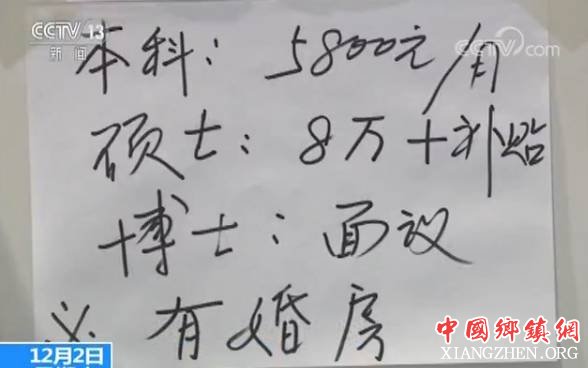 CCTV 13
新闻
CCTV.com
本科：5800元/月
硕士：8万+补贴
博士：面议
※ 有婚房
12月2日
中國鄉鎮網
XIANGZHEN.ORG